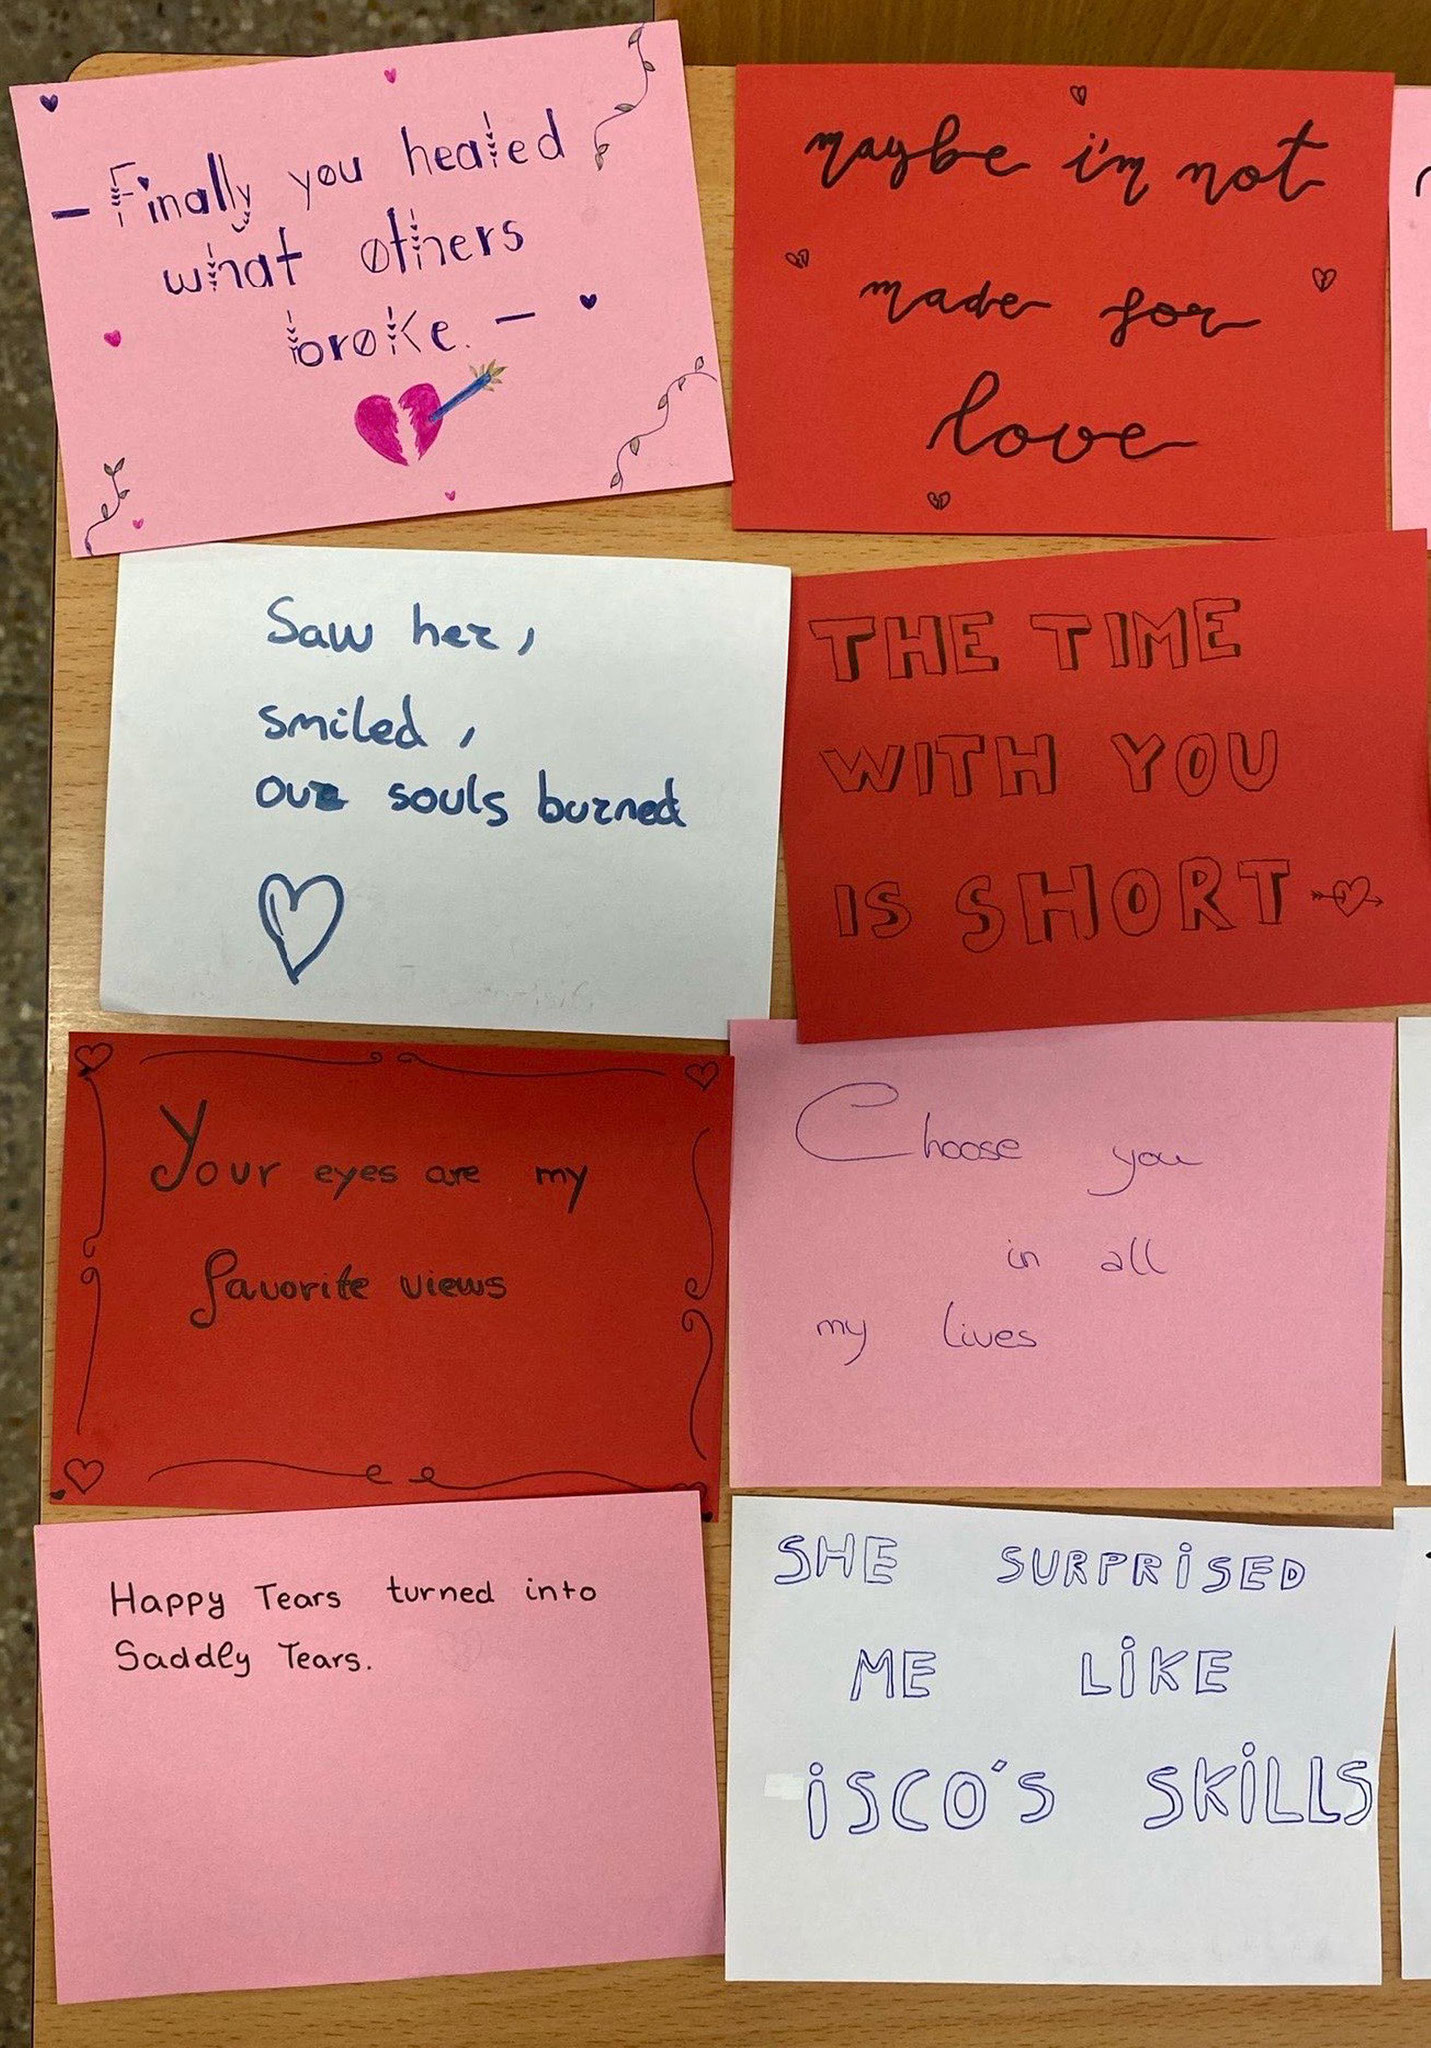 - Finally you healed
what others
broke. -
maybe i'm not
made for
love
Saw her,
smiled,
our souls burned
THE TIME
WITH YOU
IS SHORT
Your eyes are my
favorite views
Choose you
in all
my lives
Happy Tears turned into
Saddly Tears.
SHE SURPRiSED
ME LiKE
iSCO'S SKiLLS